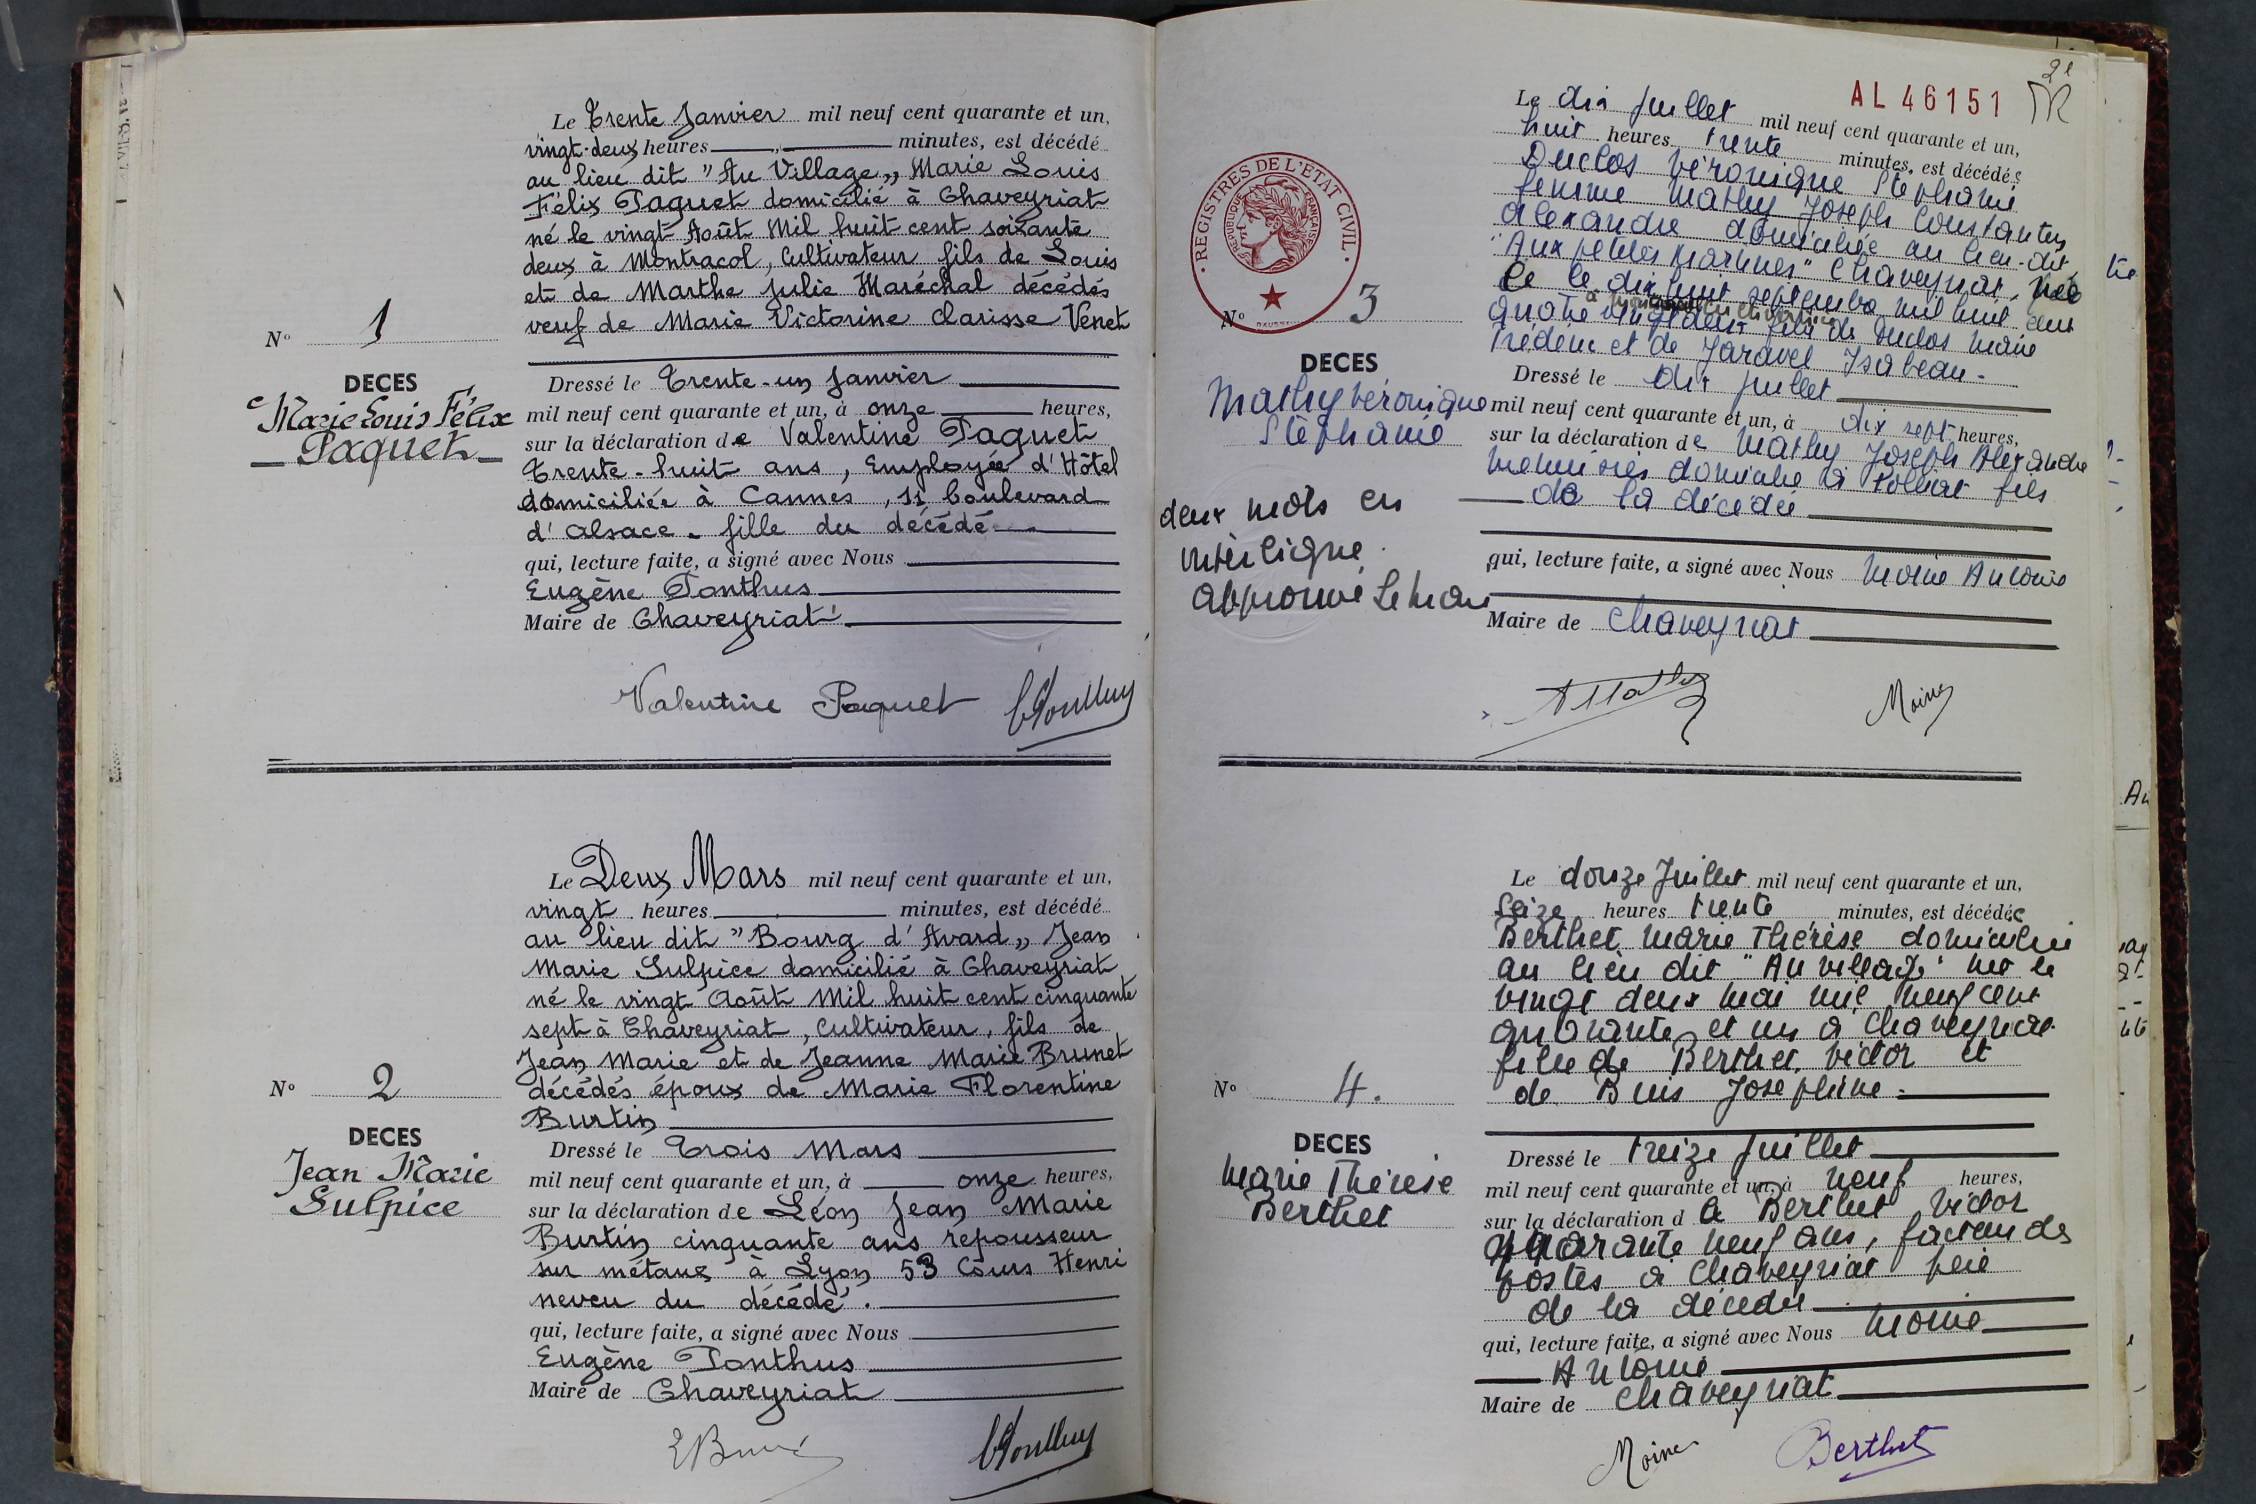 Le Trente Janvier mil neuf cent quarante et un,
vingt-deux heures minutes, est décédé
au lieu dit "Au Village„ Marie Louis
Félix Paquet domicilié à Chaveyriat
né le vingt Août Mil huit cent soixante
deux à Montracol, Cultivateur fils de Louis
et de Marthe Julie Maréchal décédés
veuf de Marie Victorine Clarisse Venet
N° 1
DECES
Marie Louis Félix
Paquet
Dressé le Trente-un Janvier
mil neuf cent quarante et un, à onze heures,
sur la déclaration de Valentine Paquet
Trente-huit ans, Employée d'Hôtel
domiciliée à Cannes, 11 boulevard
d'Alsace. fille du décédé
qui, lecture faite, a signé avec Nous
Eugène Ponthus
Maire de Chaveyriat
Valentine Paquet
Le Deux Mars mil neuf cent quarante et un,
vingt heures minutes, est décédé
au lieu dit "Bourg d'Avard„ Jean
Marie Sulpice domicilié à Chaveyriat
né le vingt Août Mil huit cent cinquante
sept à Chaveyriat, Cultivateur, fils de
Jean Marie et de Jeanne Marie Brunet
décédés époux de Marie Florentine
Burtin
N° 2
DECES
Jean Marie
Sulpice
Dressé le Trois Mars
mil neuf cent quarante et un, à onze heures,
sur la déclaration de Léon Jean Marie
Burtin cinquante ans repousseur
sur métaux à Lyon 53 Cours Henri
neveu du décédé.
qui, lecture faite, a signé avec Nous
Eugène Ponthus
Maire de Chaveyriat
21
AL 46151
Le dix Juillet mil neuf cent quarante et un,
huit heures trente minutes, est décédée
Duclos Véronique Stéphanie
femme Mathy Joseph Constantin
Alexandre domiciliée au lieu-dit
"Aux petites " Chaveyriat, née
le dix huit septembre mil huit cent
quatre vingt deux fille de Duclos Marie
Frédéric et de Jaravel Isabeau-
REGISTRES DE L'ETAT CIVIL
REPUBLIQUE FRANÇAISE
N° 3
DECES
Mathy Véronique
Stéphanie
deux mots en
interligne
approuvé Le Maire
Dressé le dix Juillet
mil neuf cent quarante et un, à dix sept heures,
sur la déclaration de Mathy Joseph Alexandre
domicilié à Polliat fils
de la décédée
qui, lecture faite, a signé avec Nous Moine Antoine
Maire de Chaveyriat
AMathy Moine
Le douze Juillet mil neuf cent quarante et un,
Seize heures trente minutes, est décédée
Berthet Marie Thérèse domiciliée
au lieu dit "Au village" née le
vingt deux Mai mil neuf cent
quarante et un à Chaveyriat
fille de Berthet Victor et
de Buis Joséphine.
N° 4.
DECES
Marie Thérèse
Berthet
Dressé le treize Juillet
mil neuf cent quarante et un, à neuf heures,
sur la déclaration d e Berthet Victor
quarante neuf ans, facteur des
postes à Chaveyriat père
de la décédée
qui, lecture faite, a signé avec Nous Moine
Antoine
Maire de Chaveyriat
Moine Berthet